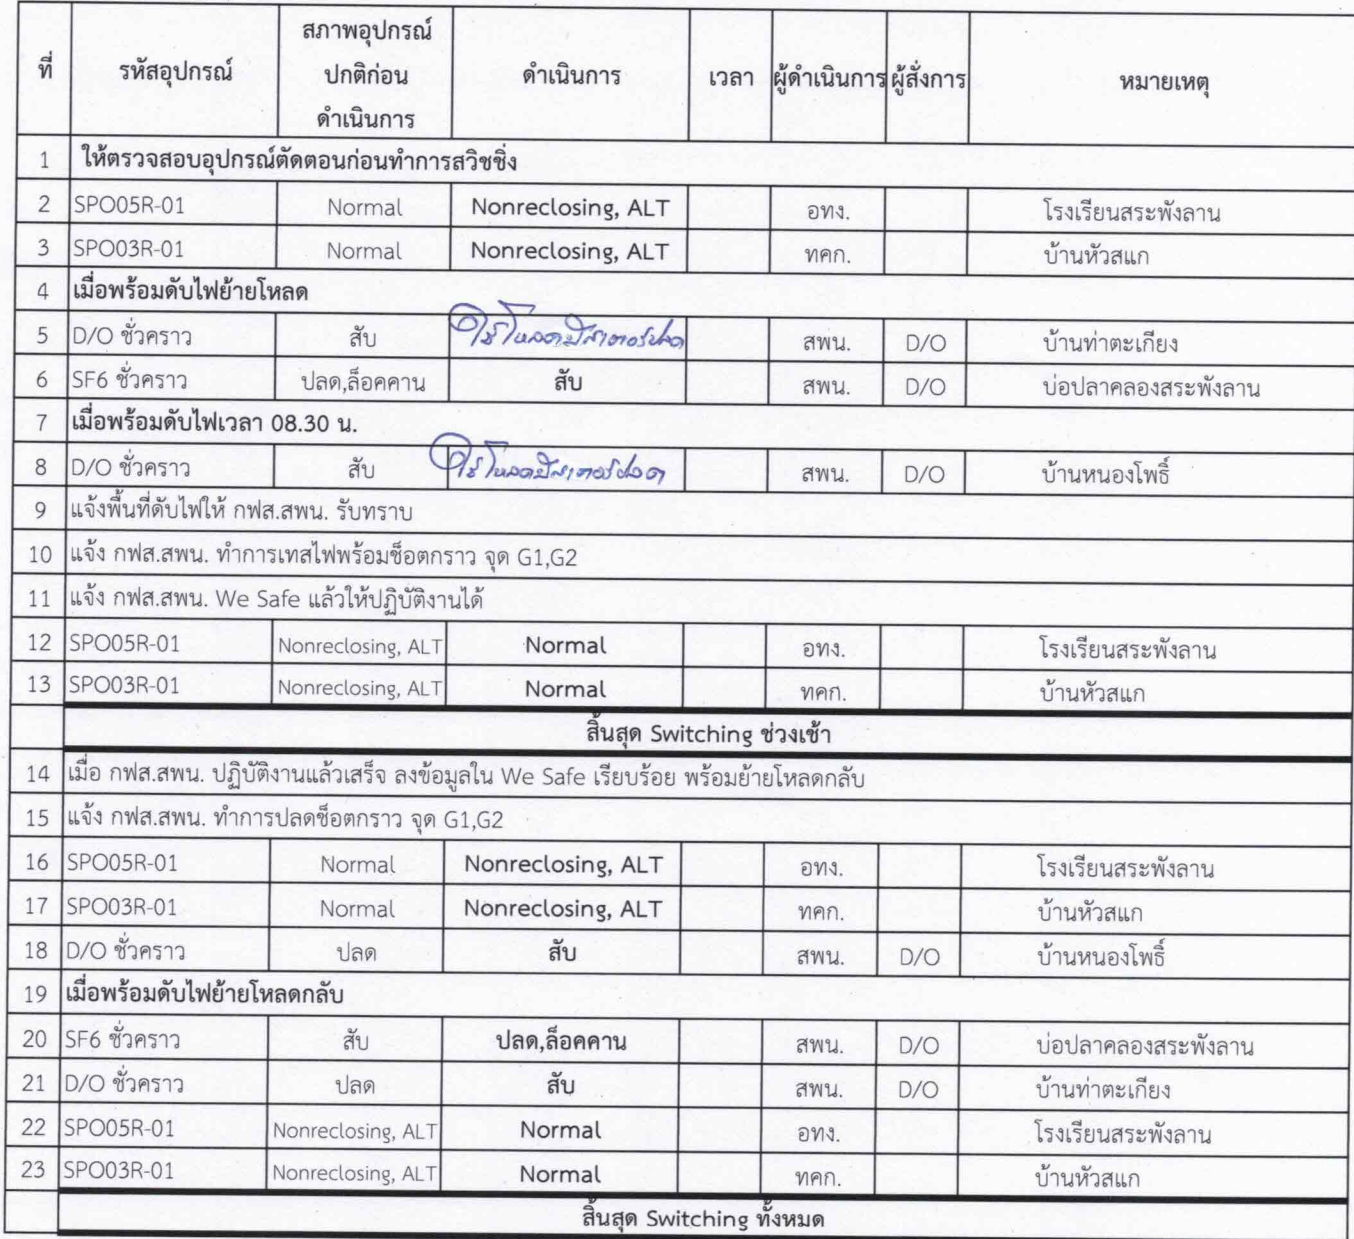 ที่ รหัสอุปกรณ์ สภาพอุปกรณ์ปกติก่อนดำเนินการ ดำเนินการ เวลา ผู้ดำเนินการ ผู้สั่งการ หมายเหตุ
1 ให้ตรวจสอบอุปกรณ์ตัดตอนก่อนทำการสวิชชิ่ง
2 SPO05R-01 Normal Nonreclosing, ALT อทง. โรงเรียนสระพังลาน
3 SPO03R-01 Normal Nonreclosing, ALT ทคก. บ้านหัวสแก
4 เมื่อพร้อมดับไฟย้ายโหลด
5 D/O ชั่วคราว สับ ใช้โหลดบัสเตอร์ปลด สพน. D/O บ้านท่าตะเกียง
6 SF6 ชั่วคราว ปลด,ล็อคคาน สับ สพน. D/O บ่อปลาคลองสระพังลาน
7 เมื่อพร้อมดับไฟเวลา 08.30 น.
8 D/O ชั่วคราว สับ ใช้โหลดบัสเตอร์ปลด สพน. D/O บ้านหนองโพธิ์
9 แจ้งพื้นที่ดับไฟให้ กฟส.สพน. รับทราบ
10 แจ้ง กฟส.สพน. ทำการเทสไฟพร้อมช็อตกราว จุด G1,G2
11 แจ้ง กฟส.สพน. We Safe แล้วให้ปฏิบัติงานได้
12 SPO05R-01 Nonreclosing, ALT Normal อทง. โรงเรียนสระพังลาน
13 SPO03R-01 Nonreclosing, ALT Normal ทคก. บ้านหัวสแก
สิ้นสุด Switching ช่วงเช้า
14 เมื่อ กฟส.สพน. ปฏิบัติงานแล้วเสร็จ ลงข้อมูลใน We Safe เรียบร้อย พร้อมย้ายโหลดกลับ
15 แจ้ง กฟส.สพน. ทำการปลดช็อตกราว จุด G1,G2
16 SPO05R-01 Normal Nonreclosing, ALT อทง. โรงเรียนสระพังลาน
17 SPO03R-01 Normal Nonreclosing, ALT ทคก. บ้านหัวสแก
18 D/O ชั่วคราว ปลด สับ สพน. D/O บ้านหนองโพธิ์
19 เมื่อพร้อมดับไฟย้ายโหลดกลับ
20 SF6 ชั่วคราว สับ ปลด,ล็อคคาน สพน. D/O บ่อปลาคลองสระพังลาน
21 D/O ชั่วคราว ปลด สับ สพน. D/O บ้านท่าตะเกียง
22 SPO05R-01 Nonreclosing, ALT Normal อทง. โรงเรียนสระพังลาน
23 SPO03R-01 Nonreclosing, ALT Normal ทคก. บ้านหัวสแก
สิ้นสุด Switching ทั้งหมด